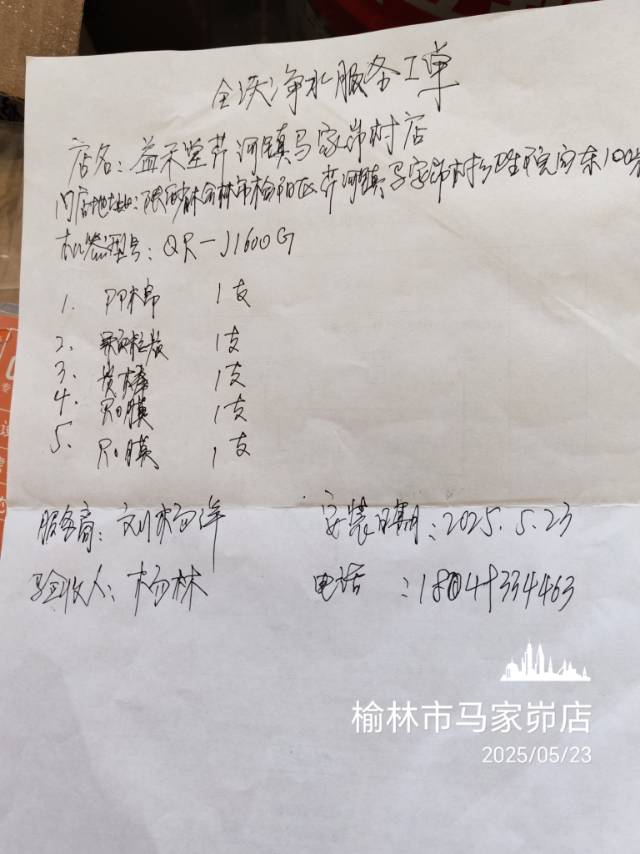 全溪净水服务工单
店名：益禾堂芹河镇马家峁村店
门店地址：陕西省榆林市榆阳区芹河镇马家峁村乡卫生院向东100米
机器型号：QR-J1600G
1. PP棉 1支
2. 颗粒炭 1支
3. 炭棒 1支
4. RO膜 1支
5. RO膜 1支
服务商：刘杨洋 安装日期：2025.5.23
验收人：杨林 电话：
榆林市马家峁店
2025/05/23